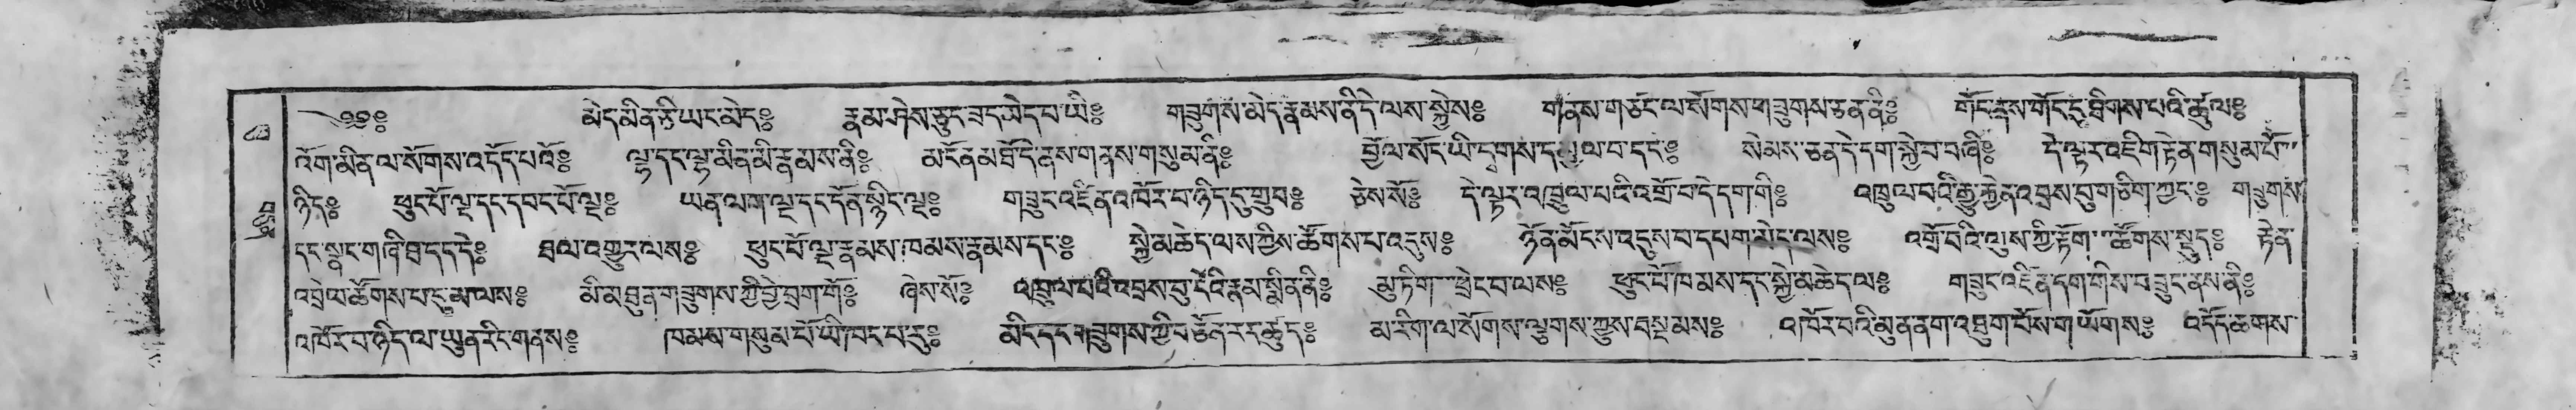 ༄༅༅༔ མེད་མིན་ཅི་ཡང་མེད༔ རྣམ་ཤེས་ཅུང་ཟད་ཡེད་པ་ཡི༔ གཟུགས་མེད་རྣམས་ནི་དེ་ལས་སྐྱེས༔ གནས་གཙང་ལ་སོགས་གཟུགས་ཅན་ནི༔ གོང་ནས་གོང་དུ་ཐིགས་པའི་ཚུལ༔
འོག་མིན་ལ་སོགས་འདོད་པའོ༔ ལྷ་དང་ལྷ་མིན་མི་རྣམས་ནི༔ མ་ངོན་མཐོ་དེ་ནས་གནས་གསུམ་ནི༔ བྱོལ་སོང་ཡི་དྭགས་དམྱལ་བ་དང༔ སེམས་ཅན་དེ་དག་སྐྱེ་བ་བཞི༔ དེ་ལྟར་འཇིག་རྟེན་གསུམ་པོ་
ཉིད༔ ཕུང་པོ་ལྔ་དང་དབང་པོ་ལྔ༔ ཡན་ལག་ལྔ་དང་དོན་སྙིང་ལྔ༔ གཟུང་འཛིན་འཁོར་བ་ཉིད་དུ་གྲུབ༔ ཅེས་སོ༔ དེ་ལྟར་འཁྲུལ་པའི་འགྲོ་བ་དེ་དག་གི༔ འཁྲུལ་བའི་རྒྱུ་རྐྱེན་འབྲས་བུ་གཅིག་ཀྱང༔ གཟུགས་
དང་སྣང་གཞི་ཐ་དད་དེ༔ ཐལ་འགྱུར་ལས༔ ཕུང་པོ་ལྔ་རྣམས་ཁམས་རྣམས་དང༔ སྐྱེ་མཆེད་ལས་ཀྱིས་ཚོགས་པ་འདུས༔ ཉོན་མོངས་འདུས་བ་དཔག་མེད་ལས༔ འགྲོ་བའི་ལུས་ཀྱི་རྟོག་ཚོགས་སྤྲུད༔ རྟེན་
འབྲེལ་ཚོགས་པ་དུ་མ་ལས༔ མི་མཐུན་གཟུགས་ཀྱི་བྱེ་བྲག་གོ༔ ཞེས་སོ༔ འཁྲུལ་པའི་འབྲས་བུ་དེའི་རྣམ་སྨིན་ནི༔ མུ་ཏིག་ཕྲེང་བ་ལས༔ ཕུང་པོ་ཁམས་དང་སྐྱེ་མཆེད་ལ༔ གཟུང་འཛིན་དག་གིས་བཟུང་ནས་ནི༔
འཁོར་བ་ཉིད་ལ་ཡུན་རིང་གནས༔ ཁམས་གསུམ་པོ་ཡི་ཁང་པ་རུ༔ མིང་དང་གཟུགས་ཀྱི་བཙོན་རར་ཚུད༔ མ་རིག་ལ་སོགས་ལྕགས་ཀྱུས་བསྡམས༔ འཁོར་བའི་མུན་ནག་འཐུག་པོས་གཡོགས༔ འདོད་ཆགས་